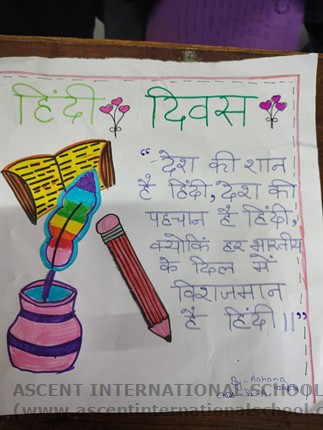 हिंदी दिवस
“देश की शान
है हिंदी, देश की
पहचान है हिंदी,
क्योकि हर भारतीय
के दिल में
विराजमान
है हिंदी।।”
By-
ASCENT INTERNATIONAL SCHOOL
(www.ascentinternationalschool.c